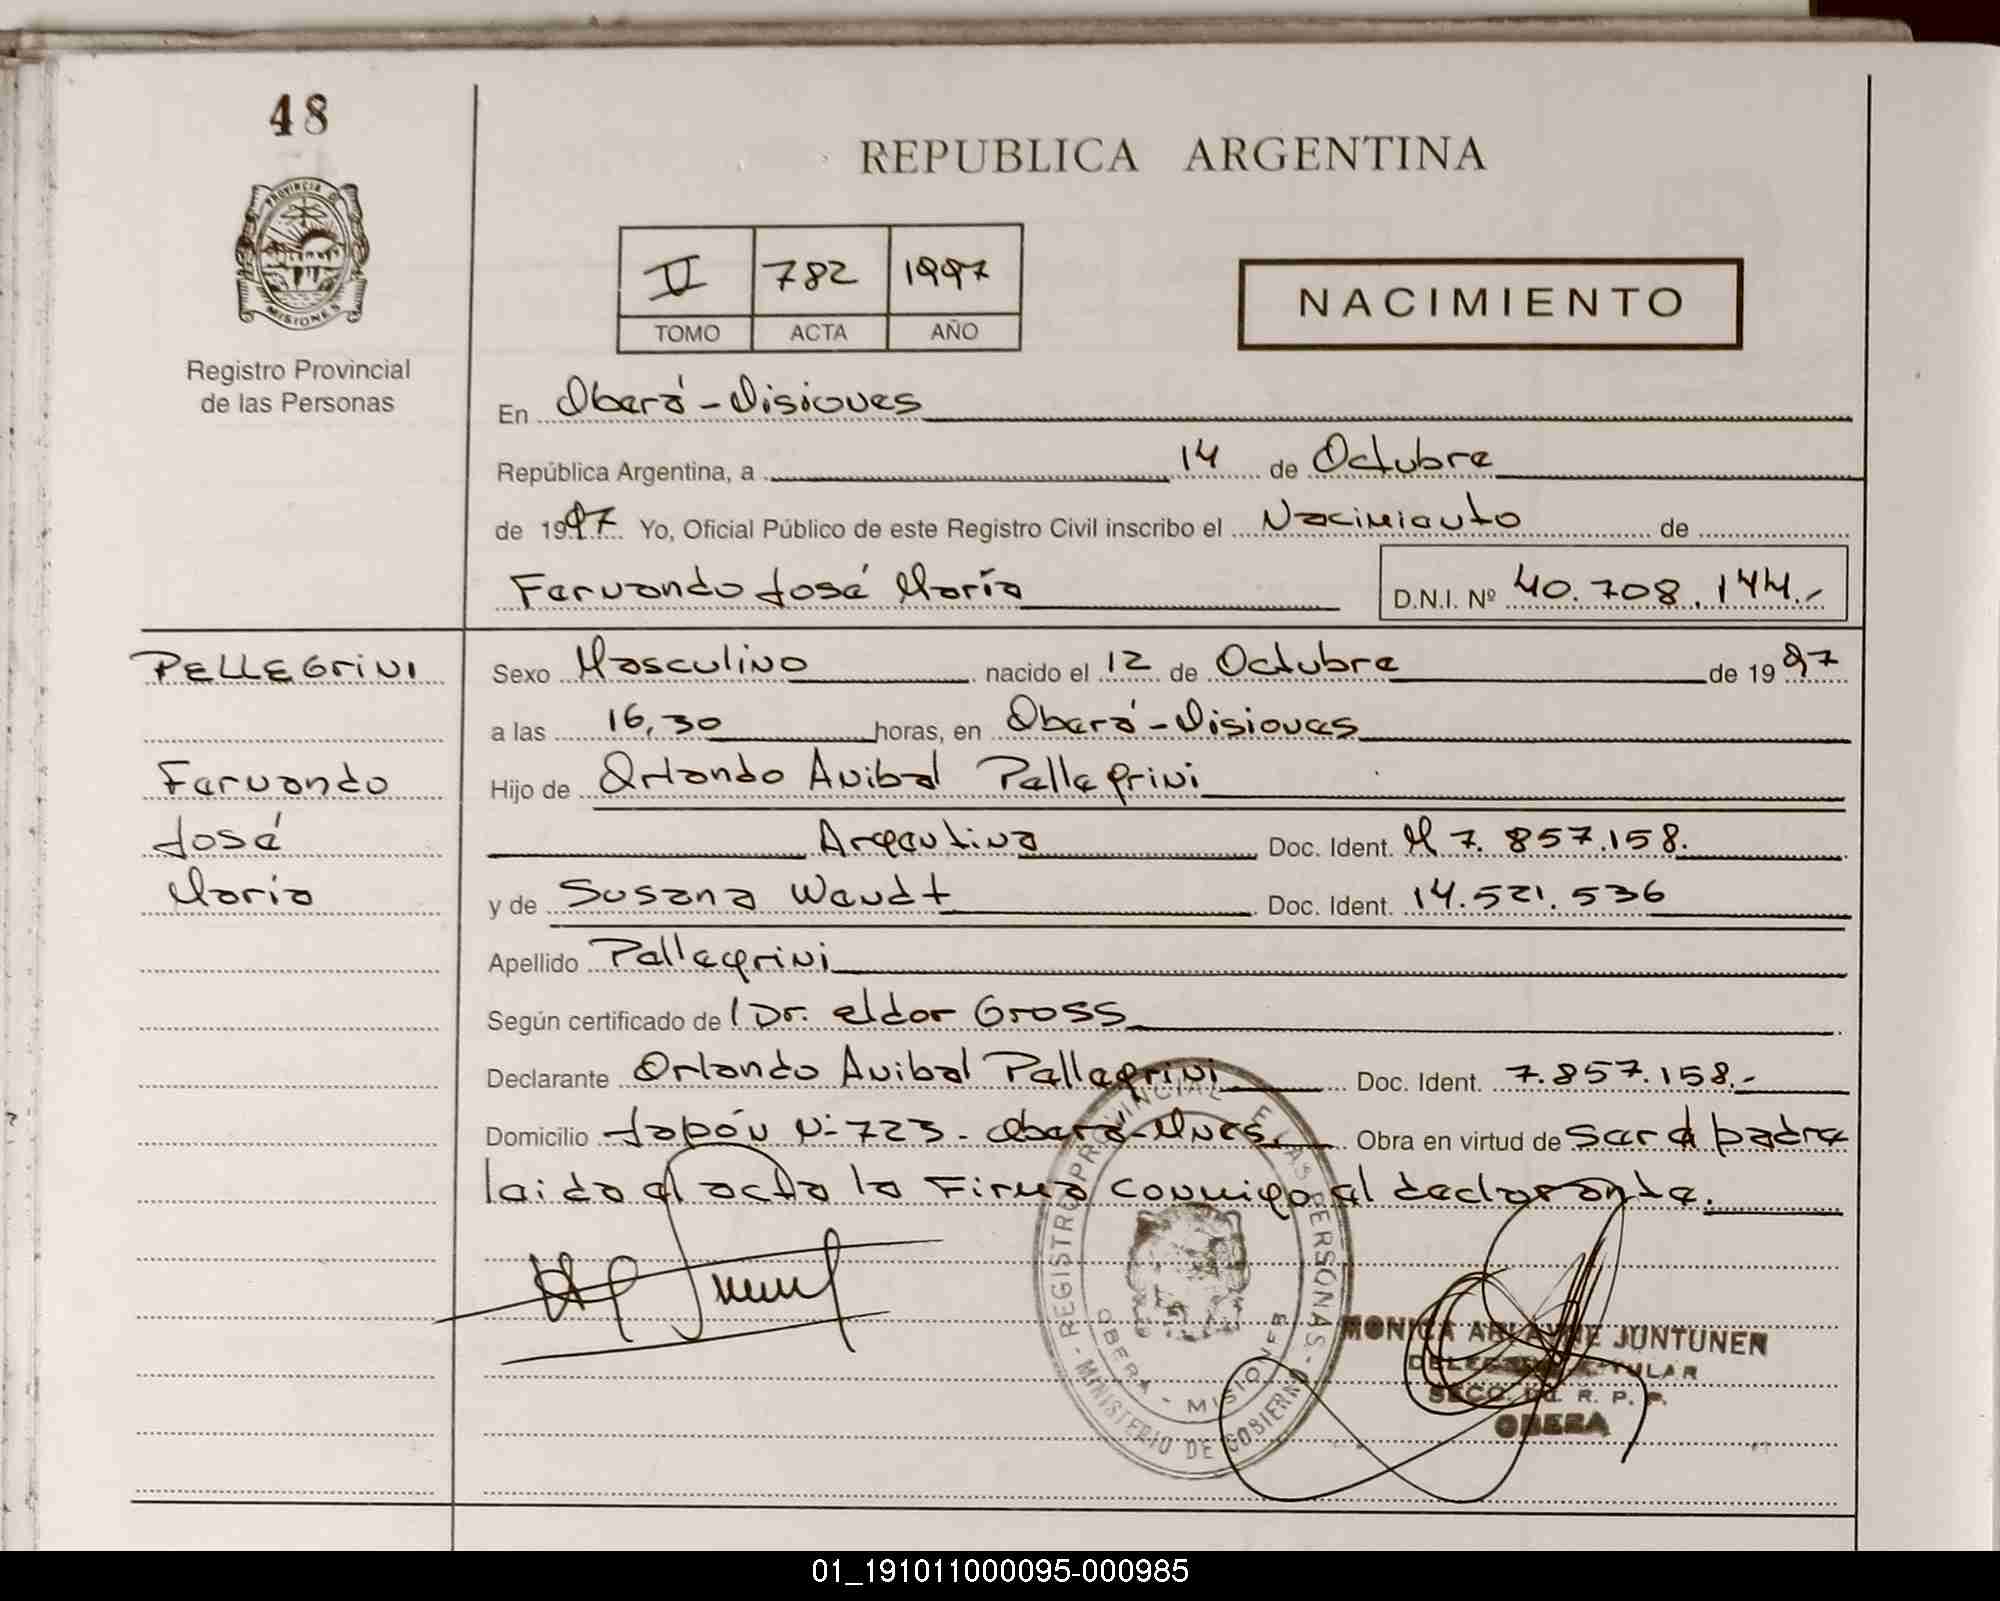 48
PROVINCIA DE
MISIONES
Registro Provincial
de las Personas
REPUBLICA ARGENTINA
II 782 1997
TOMO ACTA AÑO
NACIMIENTO
En Oberá - Misiones
República Argentina, a 14 de Octubre
de 1997 Yo, Oficial Público de este Registro Civil inscribo el Nacimiento de
Fernando José María D.N.I. Nº 40.708.144.-
PELLEGRINI
Fernando
José
María
Sexo Masculino nacido el 12 de Octubre de 1997
a las 16,30 horas, en Oberá - Misiones
Hijo de Orlando Anibal Pellegrini
Argentina Doc. Ident. M 7.857.158.
y de Susana Wendt Doc. Ident. 14.521.536
Apellido Pellegrini
Según certificado de / Dr. Eldor Gross
Declarante Orlando Anibal Pellegrini Doc. Ident. 7.857.158.-
Domicilio Japón Nº 723 - Oberá - Mnes. Obra en virtud de ser el padre
leida el acta la firma conmigo el declarante.
REGISTRO PROVINCIAL DE LAS PERSONAS - MINISTERIO DE GOBIERNO -
OBERA - MISIONES
MONICA ARLAYNE JUNTUNEN
DELEGADA TITULAR
SECC. R. P. P.
OBERA
01_191011000095-000985